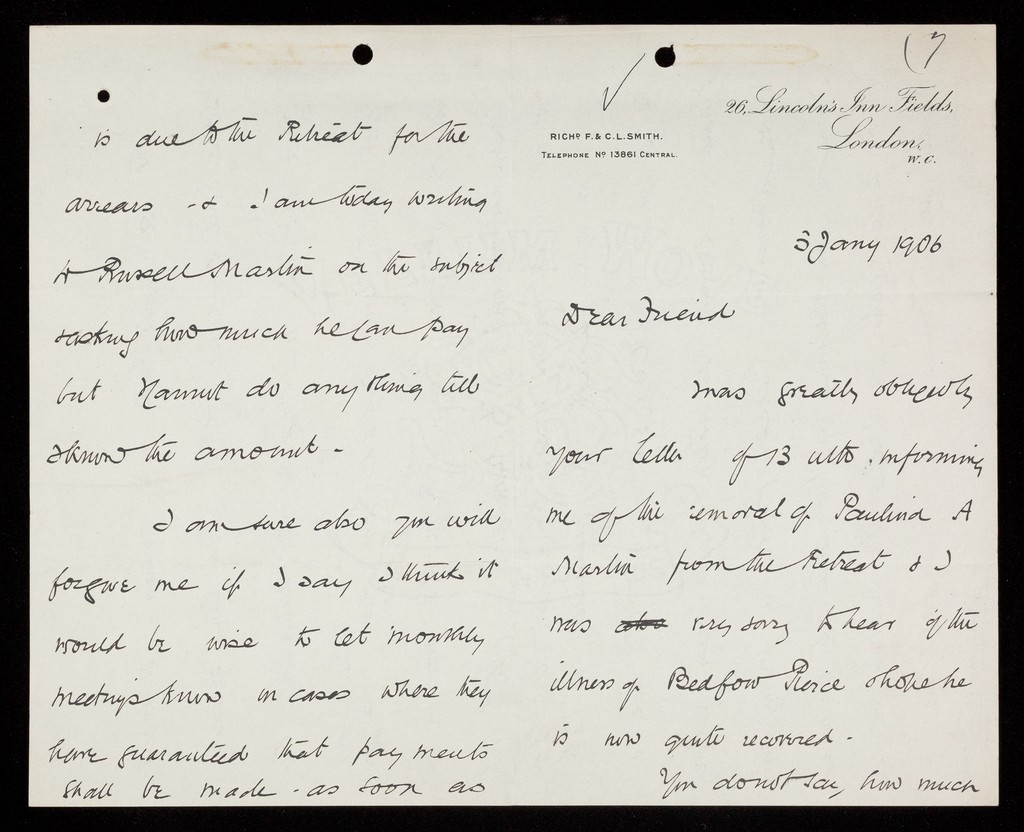 (7
26, Lincoln's Inn Fields,
London,
W.C.
RICHD F. & C. L. SMITH.
TELEPHONE No 13861 CENTRAL.
3 Jany 1906
Dear Friend
I was greatly obliged by
your letter of 13 ulto. informing
me of the removal of Paulina A
Martin from the Retreat & I
was very sorry to hear of the
illness of Bedford Pierce & hope he
is now quite recovered -
You do not say how much
is due to the Retreat for the
arrears - & I am today writing
to Russell Martin on the subject
asking how much he can pay
but I cannot do anything till
I know the amount -
I am sure also you will
forgive me if I say I think it
would be wise to let monthly
meetings know in cases where they
have guaranteed that payments
shall be made - as soon as